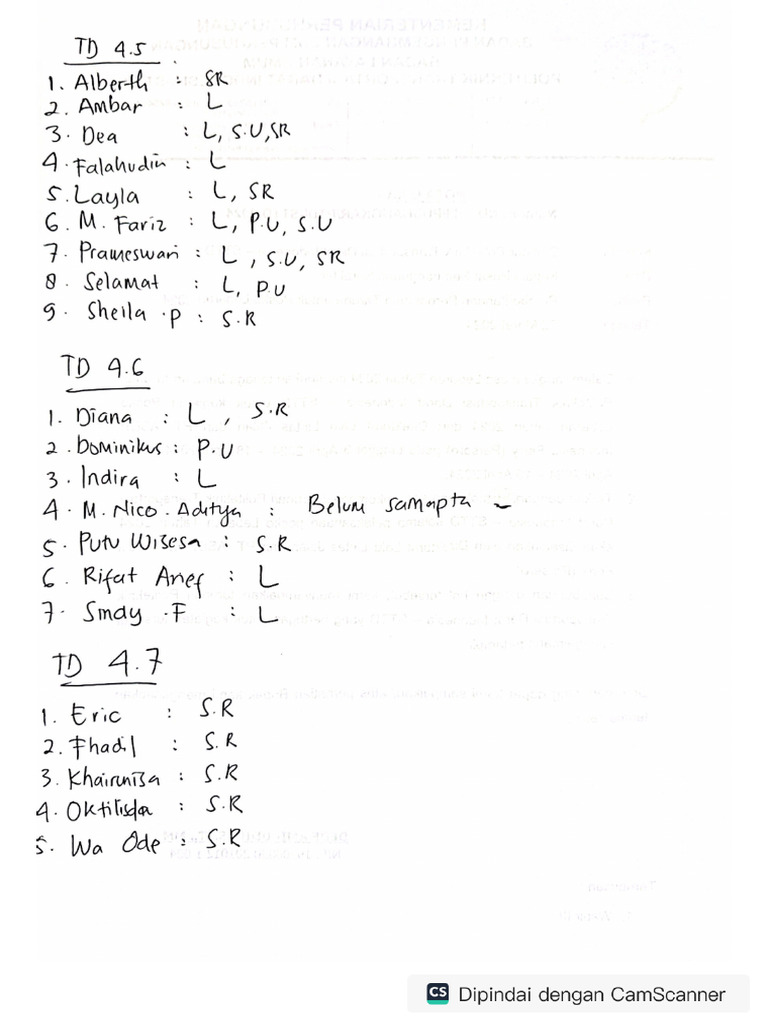 TD 4.5
1. Alberth : SR
2. Ambar : L
3. Dea : L, S.U, SR
4. Falahudin : L
5. Layla : L, SR
6. M. Fariz : L, P.U, S.U
7. Prameswari : L, S.U, SR
8. Selamat : L, P.U
9. Sheila .P : S.R
TD 4.6
1. Diana : L, S.R
2. Dominikus : P.U
3. Indira : L
4. M. Nico. Aditya : Belum samapta -
5. Putu Wisesa : S.R
6. Rifat Arief : L
7. Smdy .F : L
TD 4.7
1. Eric : S.R
2. Fhadil : S.R
3. Khairunisa : S.R
4. Oktilisda : S.R
5. Wa Ode : S.R
CS Dipindai dengan CamScanner